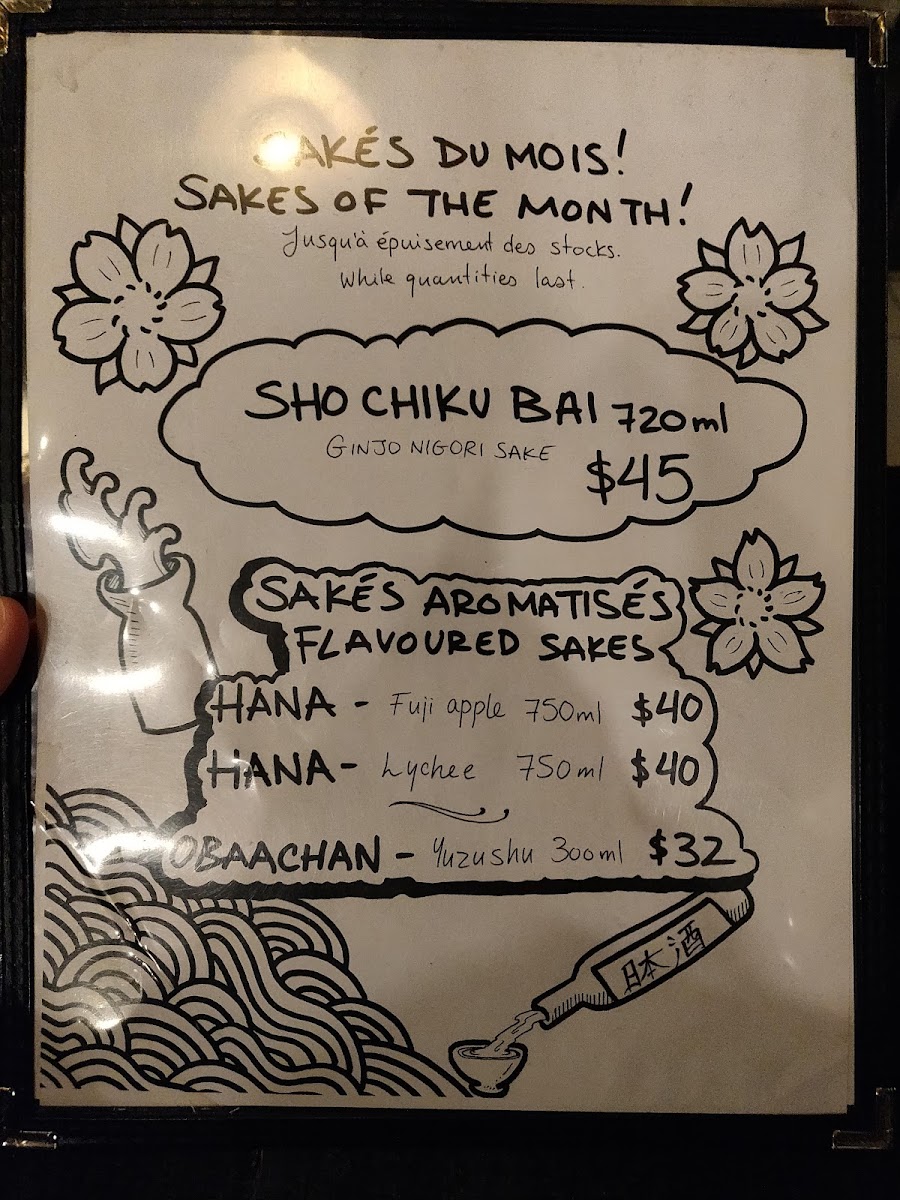 SAKÉS DU MOIS!
SAKES OF THE MONTH!
Jusqu'à épuisement des stocks.
While quantities last.
SHO CHIKU BAI 720ml
GINJO NIGORI SAKE
$45
SAKÉS AROMATISÉS
FLAVOURED SAKES
HANA - Fuji apple 750ml $40
HANA - Lychee 750ml $40
OBAACHAN - Yuzushu 300ml $32
日本酒